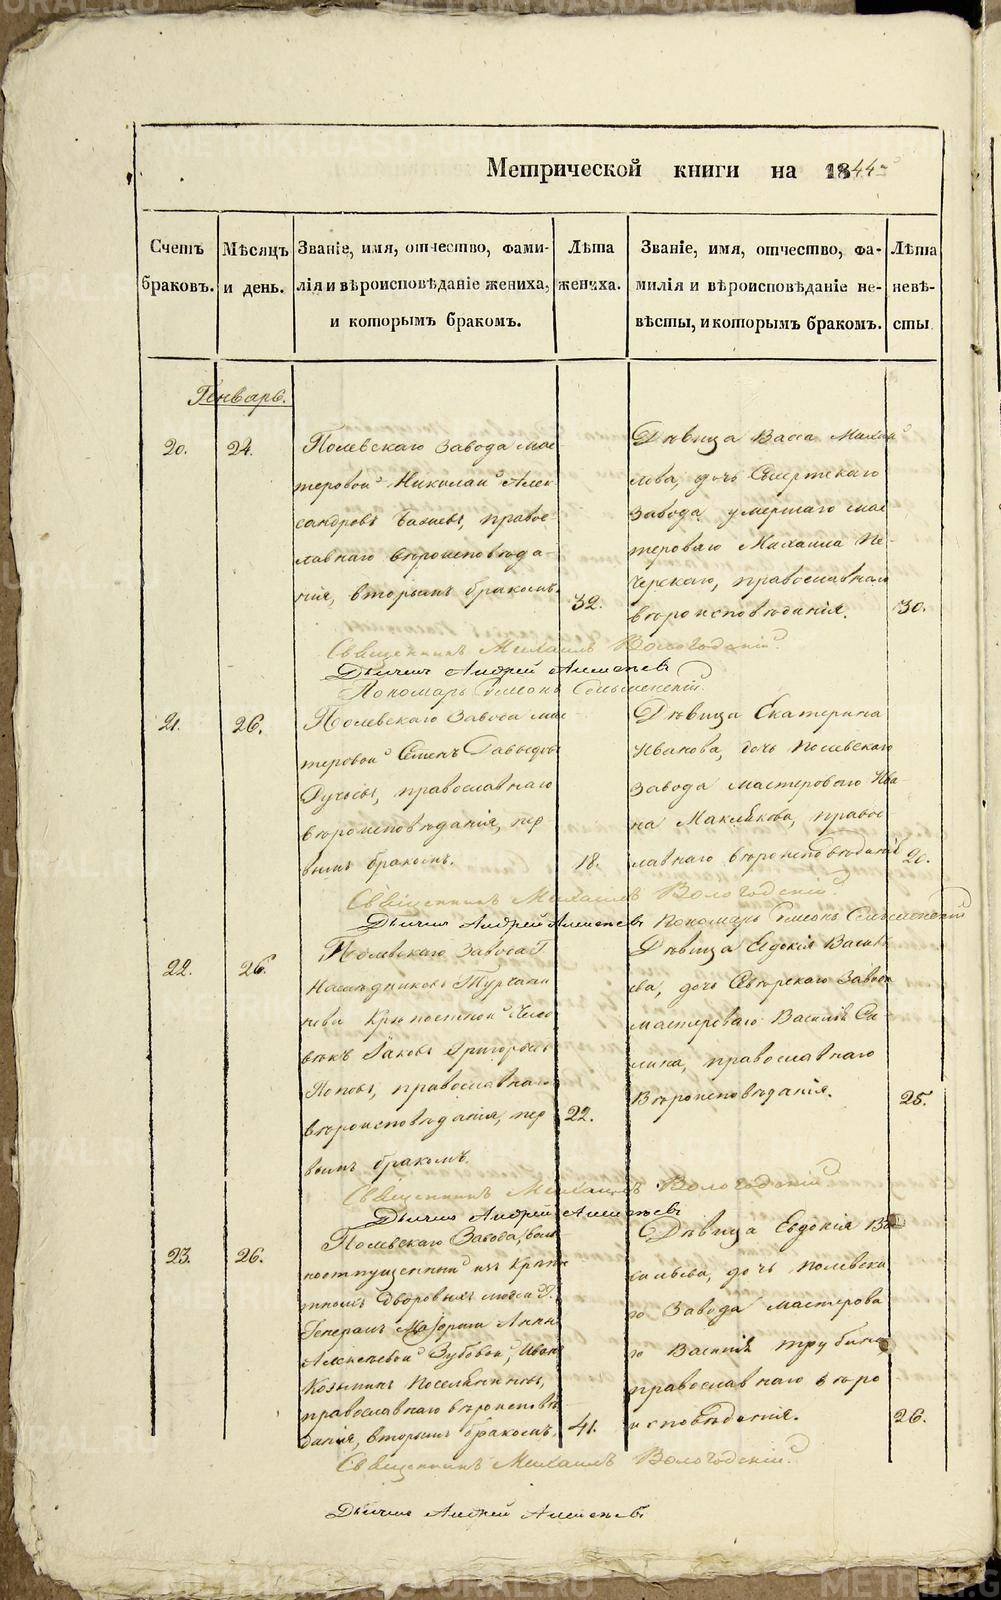 Метрической книги на 1844й
Счетъ браковъ.
Мѣсяцъ и день.
Званіе, имя, отчество, фами-
лія и вѣроисповѣданіе жениха,
и которымъ бракомъ.
Лѣта жениха.
Званіе, имя, отчество, фа-
милія и вѣроисповѣданіе не-
вѣсты, и которымъ бракомъ.
Лѣта невѣ-
сты
Генварь.
20.
24.
Полевскаго Завода мас
теровой Николай Алек
сандровъ, правос
лавнаго вѣроисповѣда-
нія, вторымъ бракомъ.
32.
Дѣвица Васса Михаи
лова, дочь Сысертскаго
Завода умершаго мас
тероваго Михаила Пе-
черскаго, православнаго
вѣроисповѣданія.
30.
Священникъ Михаилъ Вологодскій.
Дьячекъ Андрей
Пономарь Симеонъ
21.
26.
Полевскаго Завода мас
теровой Семенъ Давыдовъ
православнаго
вѣроисповѣданія, пер
вымъ бракомъ.
18.
Дѣвица Екатерина
Иванова, дочь Полевскаго
Завода мастероваго Ива
на правос
лавнаго вѣроисповѣданія
20.
Священникъ Михаилъ Вологодскій.
Дьячекъ Андрей Пономарь Симеонъ
22.
26.
Полевскаго Завода Г.
Наслѣдниковъ Турчани
нова Крѣпостной Чело
вѣкъ Яковъ Григорьевъ
Поповъ, православнаго
вѣроисповѣданія, пер
вымъ бракомъ.
22.
Дѣвица Евдокія Василь
ева, дочь Сѣверскаго Завода
мастероваго Василія Са
лина, православнаго
Вѣроисповѣданія.
25.
Священникъ Михаилъ Вологодскій
Дьячекъ Андрей
23.
26.
Полевскаго Завода, воль
ноотпущенный изъ Крѣпос
тныхъ дворовыхъ людей Г.
Генералъ Маіорши Анны
Алексѣевой Зубовой, Иванъ
Козьминъ
православнаго вѣроисповѣ
данія, вторымъ бракомъ.
41.
Дѣвица Евдокія Ва
сильева, дочь Полевска
го Завода мастерова
го Василія Трубина,
православнаго вѣро
исповѣданія.
26.
Священникъ Михаилъ Вологодскій.
Дьячекъ Андрей
METRIKI.GASO-URAL.RU